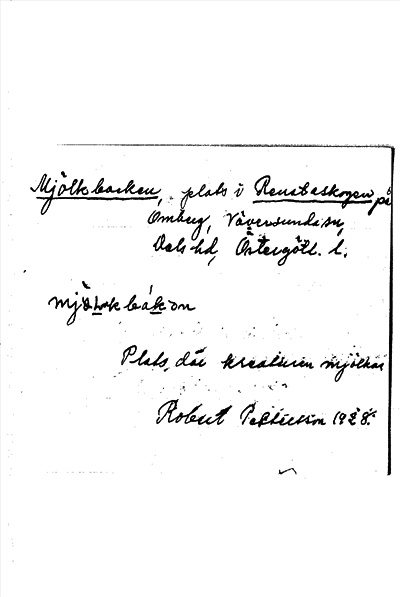 Mjölkbacken, plats i Renstaskogen på
Omberg, Väversunda sn,
Dals hd, Östergötl. l.
mjö̀lkbákən
Plats, där kreaturen mjölkas
Robert Pettersson 1928.